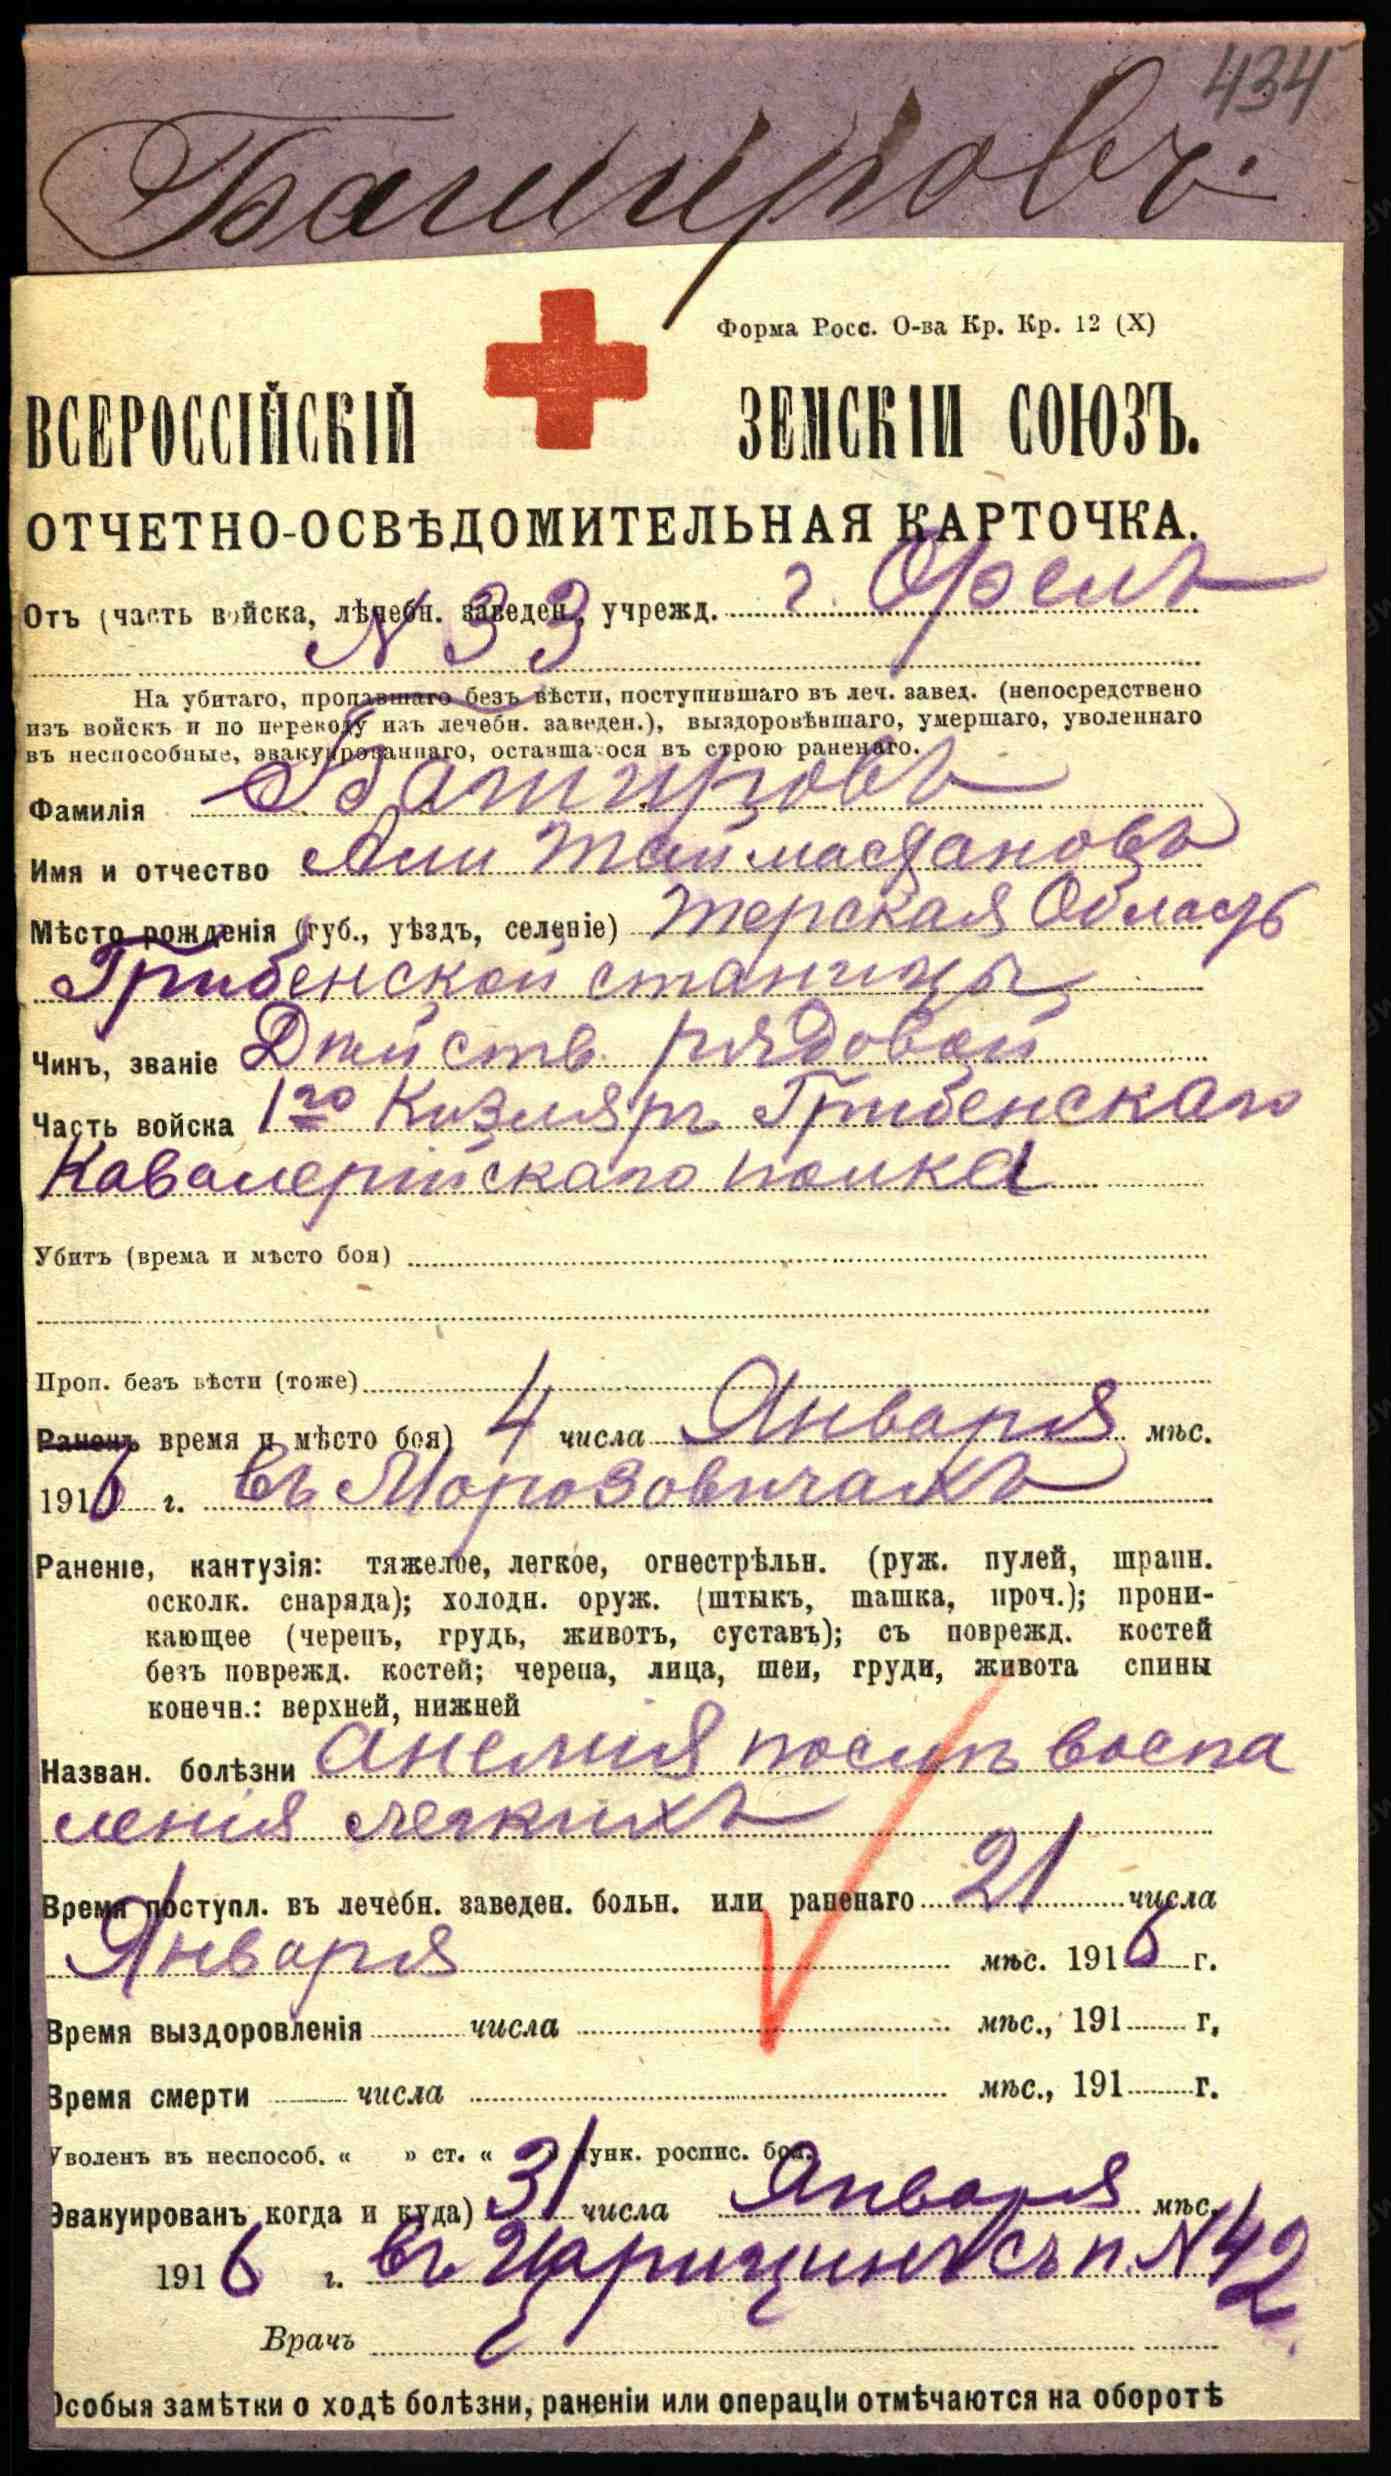 434
Башировъ.
Форма Росс. О-ва Кр. Кр. 12 (X)
ВСЕРОССІЙСКІЙ ЗЕМСКІЙ СОЮЗЪ.
ОТЧЕТНО-ОСВѢДОМИТЕЛЬНАЯ КАРТОЧКА.
Отъ (часть войска, лѣчебн. заведен., учрежд. г. Орелъ
N 33
На убитаго, пропавшаго безъ вѣсти, поступившаго въ леч. завед. (непосредствено
изъ войскъ и по переводу изъ лечебн. заведен.), выздоровѣвшаго, умершаго, уволеннаго
въ неспособные, эвакуированнаго, оставшагося въ строю раненаго.
Фамилія Башировъ
Имя и отчество Али Таймасхановъ
Мѣсто рожденія (губ., уѣздъ, селеніе) Терская Область
Грибенской станицы
Чинъ, званіе Дѣйств. рядовой
Часть войска 1го Кизляръ Грибенскаго
Кавалерійскаго полка
Убитъ (врема и мѣсто боя)
Проп. безъ вѣсти (тоже)
Раненъ время и мѣсто боя) 4 числа Января мѣс.
1916 г. въ Морозовичахъ
Раненіе, кантузія: тяжелое, легкое, огнестрѣльн. (руж. пулей, шрапн.
осколк. снаряда); холодн. оруж. (штыкъ, шашка, проч.); прони-
кающее (черепъ, грудь, животъ, суставъ); съ поврежд. костей
безъ поврежд. костей; черепа, лица, шеи, груди, живота спины
конечн.: верхней, нижней
Назван. болѣзни Анемія послѣ воспа
ленія легкихъ
Время поступл. въ лечебн. заведен. больн. или раненаго 21 числа
Января мѣс. 1916 г.
Время выздоровленія числа мѣс., 191 г,
Время смерти числа мѣс., 191 г.
Уволенъ въ неспособ. « » ст. « » пунк. роспис. бол.
Эвакуированъ когда и куда) 31 числа Января мѣс.
1916 г. въ Царицинъ съ п. N 42
Врачъ
Особыя замѣтки о ходѣ болѣзни, раненіи или операціи отмѣчаются на оборотѣ